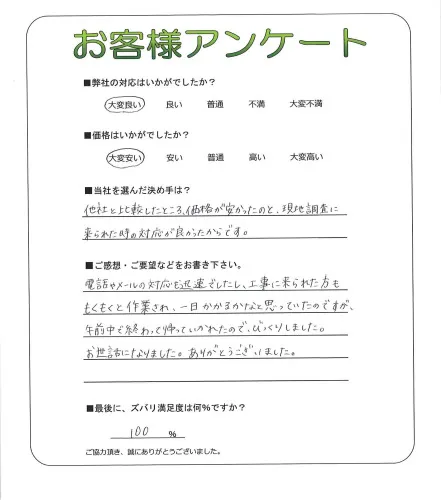 お客様アンケート
■弊社の対応はいかがでしたか?
大変良い 良い 普通 不満 大変不満
■価格はいかがでしたか?
大変安い 安い 普通 高い 大変高い
■当社を選んだ決め手は?
他社と比較したところ、価格が安かったのと、現地調査に
来られた時の対応が良かったからです。
■ご感想・ご要望などをお書き下さい。
電話やメールの対応も迅速でしたし、工事に来られた方も
もくもくと作業され、一日かかるかなと思っていたのですが、
午前中で終わって帰っていかれたので、びっくりしました。
お世話になりました。ありがとうございました。
■最後に、ズバリ満足度は何%ですか?
100 %
ご協力頂き、誠にありがとうございました。